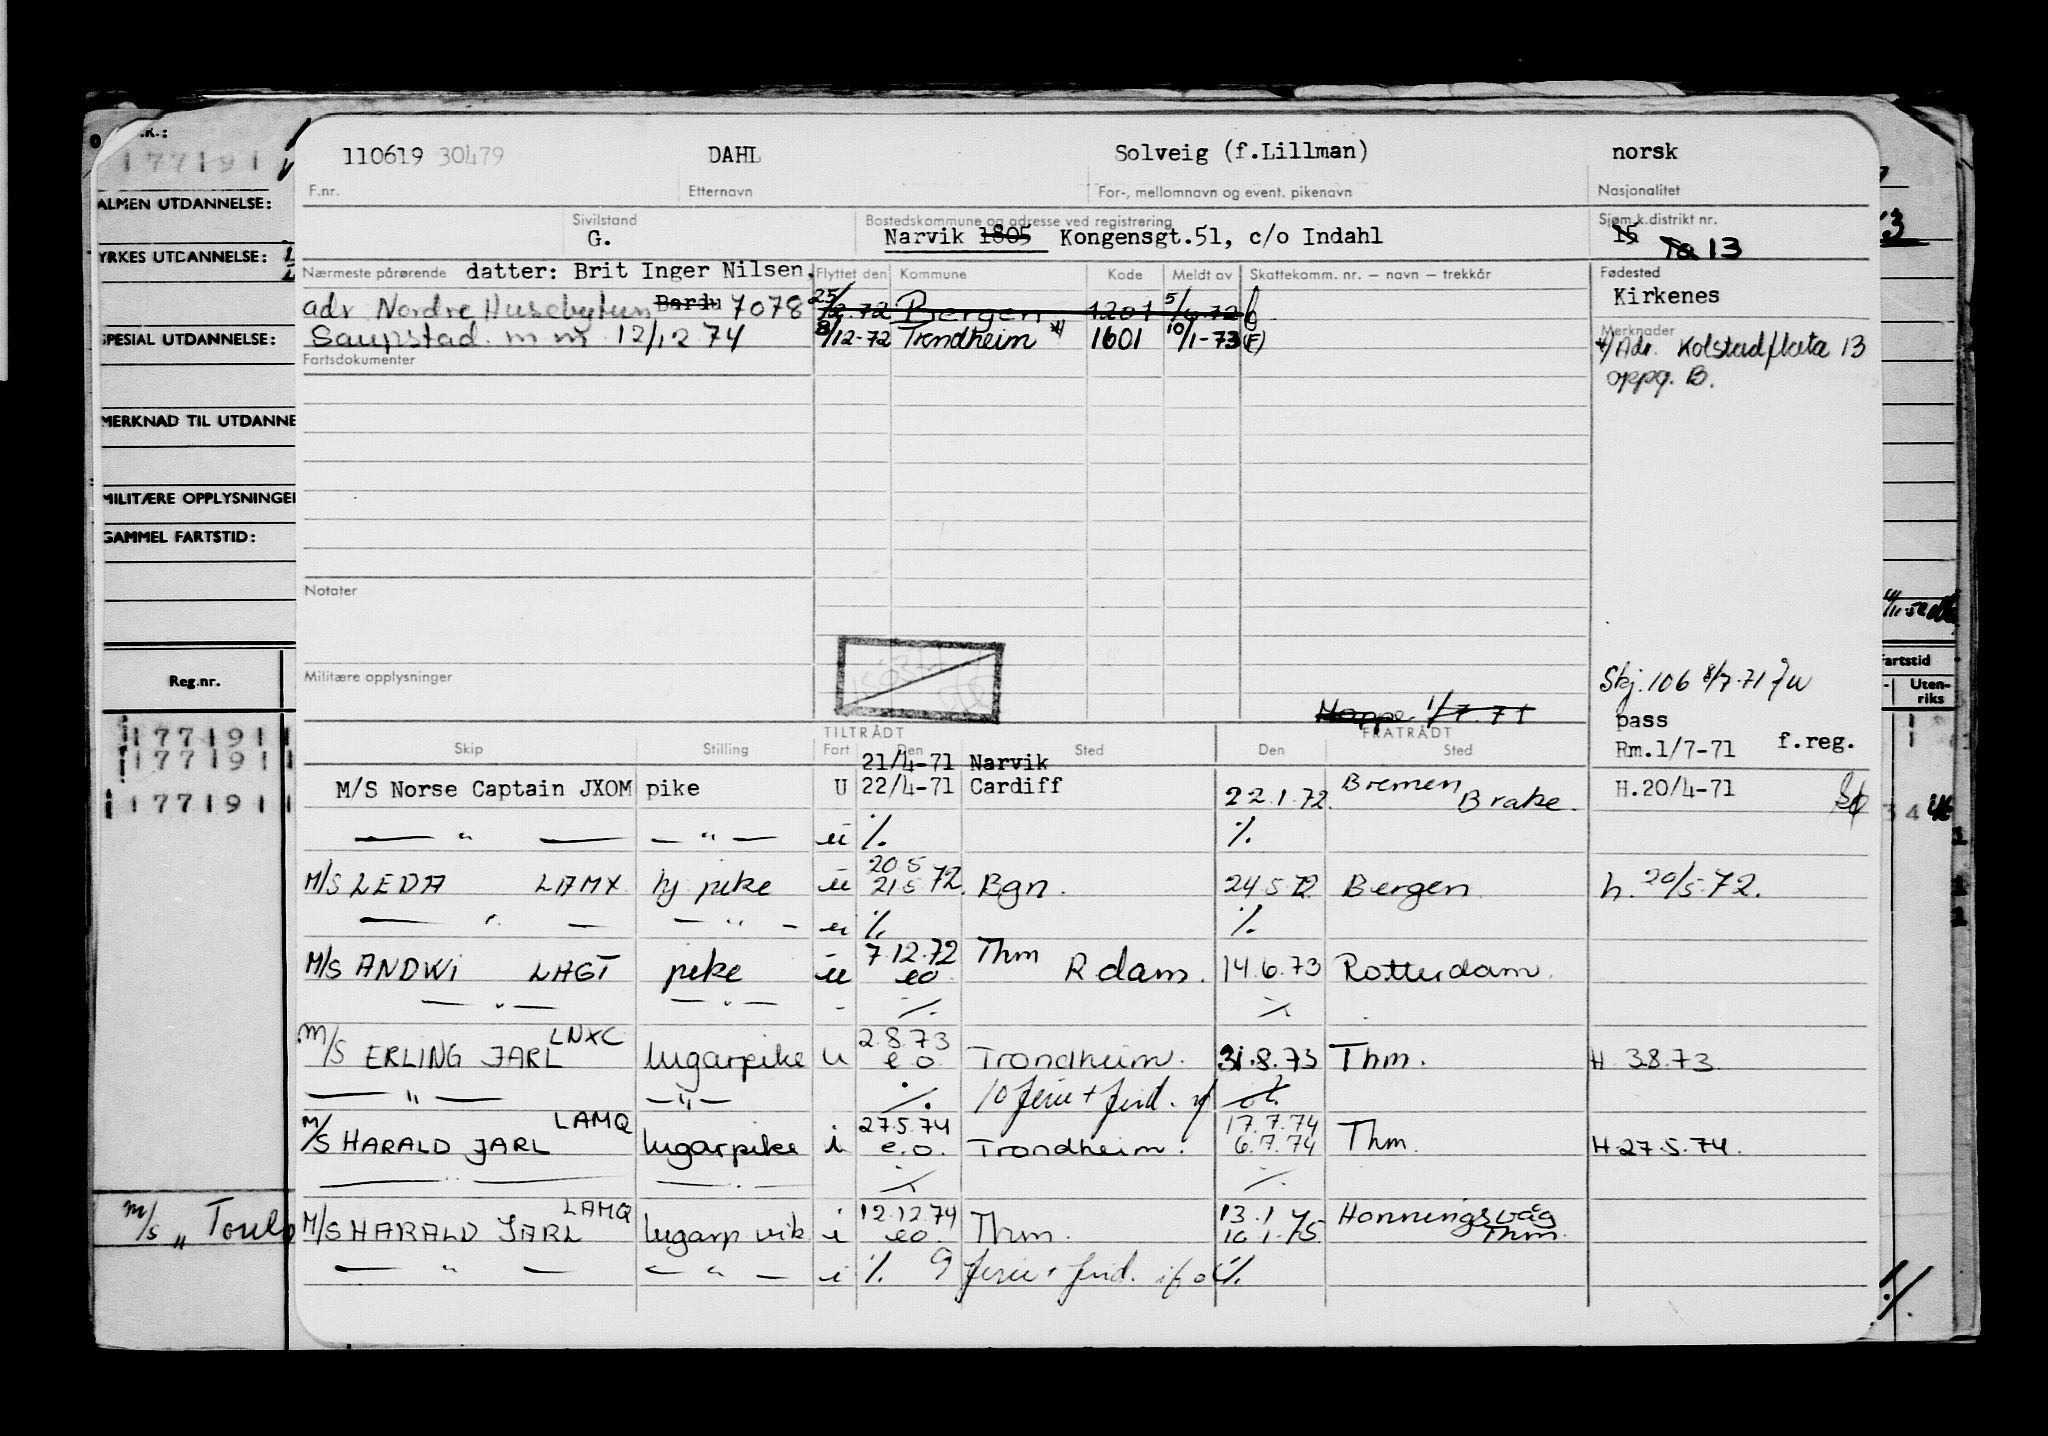 110619 30479 DAHL Solveig (f.Lillman) norsk
F.nr. Etternavn For-, mellomnavn og event. pikenavn Nasjonalitet
Sivilstand Bostedskommune og adresse ved registrering Sjøm.k.distrikt nr.
G. Narvik 1805 Kongensgt.51, c/o Indahl 15 13
Nærmeste pårørende datter: Brit Inger Nilsen, Flyttet den Kommune Kode Meldt av Skattekomm. nr. – navn – trekkår Fødested
Kirkenes
adr Nordre Husebytun Bardu 7078 Bergen 1201 5/6.72
Saupstad. m nr 12/12 74 8/12-72 Trondheim 1601 10/1-73 (F)
Merknader
Adr. Kolstadflata 13
oppg. B.
Fartsdokumenter
Notater
Militære opplysninger
Skj.106 8/7.71
Mappe 1/7.71
pass
Rm.1/7-71 f.reg.
H.20/4-71
TILTRÅDT FRATRÅDT
Skip Stilling Fart Den Sted Den Sted
21/4-71 Narvik
M/S Norse Captain JXOM pike U 22/4-71 Cardiff 22.1.72. Bremen Brake.
— " — — " — u ./. ./.
20.5
M/S LEDA LAMX hj pike u 21.5 72. Bgn. 24.5.72 Bergen h. 20/5.72.
— " — — " — u ./. ./.
7.12.72 Thm
M/S ANDWI LHGT pike u eo R dam. 14.6.73 Rotterdam.
— " — — " — - ./. ./.
LNXC 2.8.73
M/S ERLING JARL lugarpike u e.o. Trondheim. 31.8.73 Thm. H 3.8.73.
— " — — " — ./. 10 ferie + frid.
LAMQ 27.5.74 17.7.74
M/S HARALD JARL lugarpike i e.o. Trondheim. 6.7.74 Thm. H 27.5.74.
— " — — " — ./. ./.
LAMQ 12.12.74 13.1 Honningsvåg
M/S HARALD JARL lugarp vik i eo Thm. 16 1.75. Thm.
— " — — " — i ./. 9 ferie + frid. ./.
177191
ALMEN UTDANNELSE:
YRKES UTDANNELSE:
SPESIAL UTDANNELSE:
MERKNAD TIL UTDANNE
MILITÆRE OPPLYSNINGER
GAMMEL FARTSTID:
Reg.nr.
177191
177191
177191
m/s "
fartstid
Uten-
riks
34